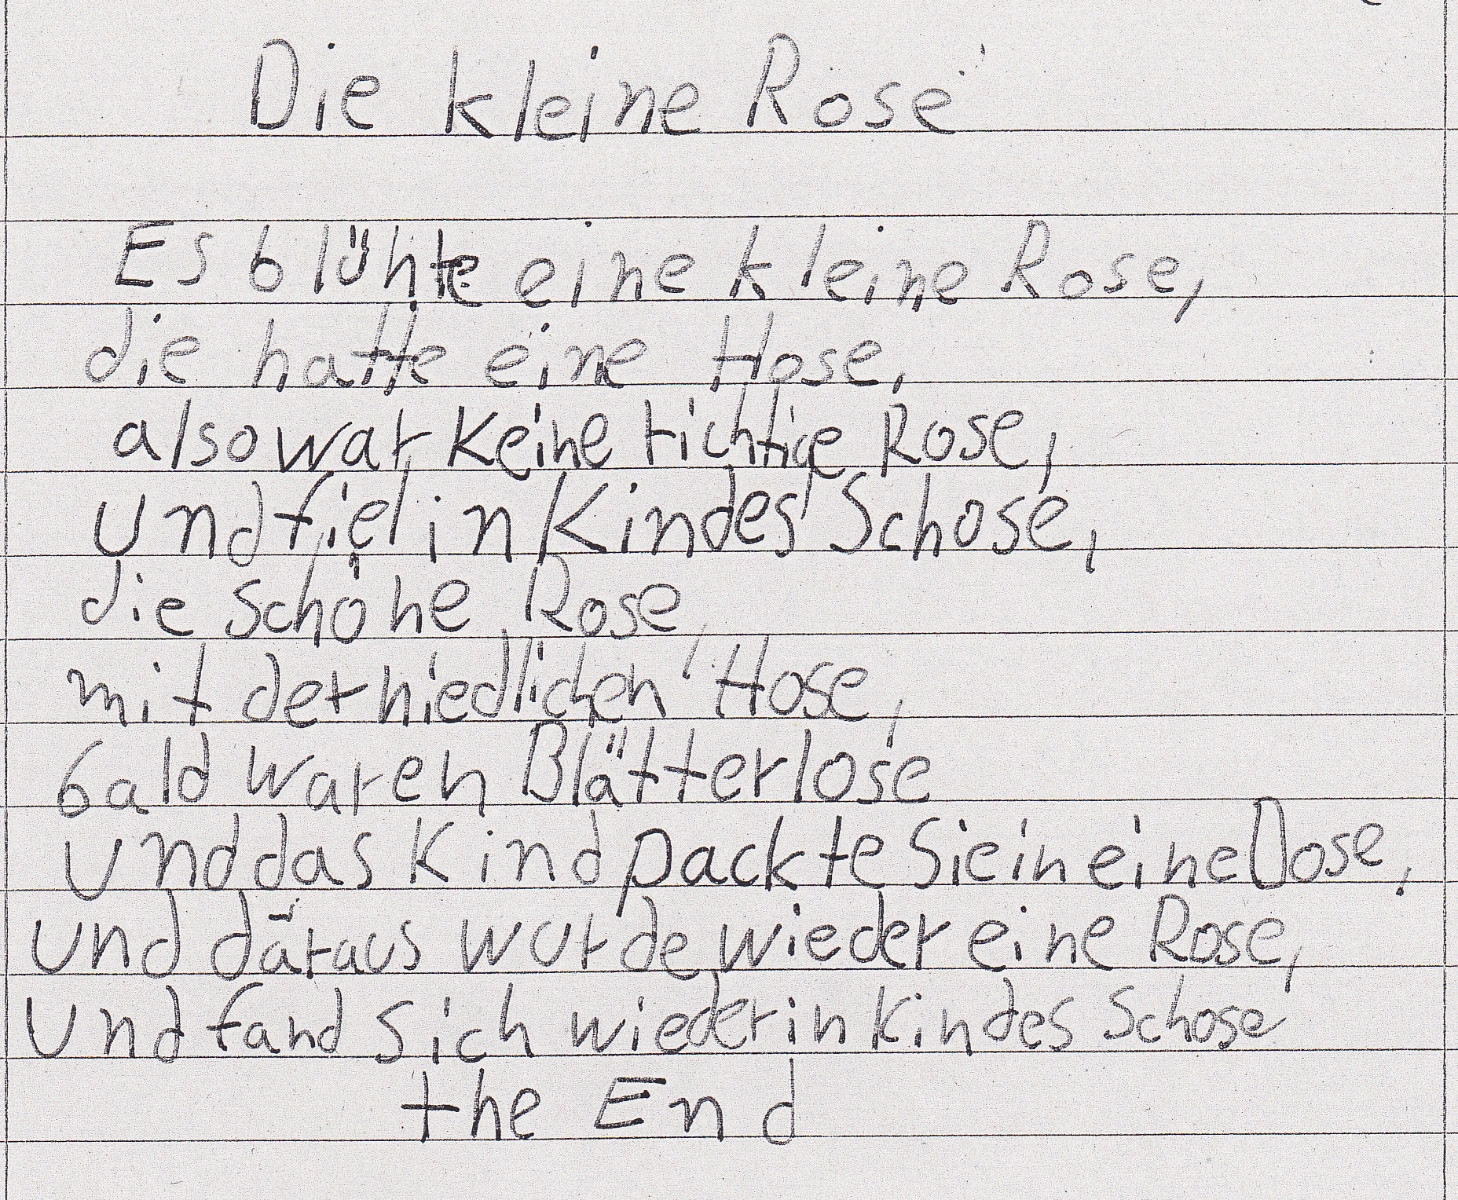 Die kleine Rose
Es blühte eine kleine Rose,
die hatte eine Hose,
also war keine richtige Rose,
und fiel in Kindes Schose,
die schöne Rose,
mit der niedlichen Hose,
bald waren Blätter lose
und das Kind packte Sie in eine Dose,
und däraus wurde wieder eine Rose,
und fand sich wieder in Kindes Schose
the End